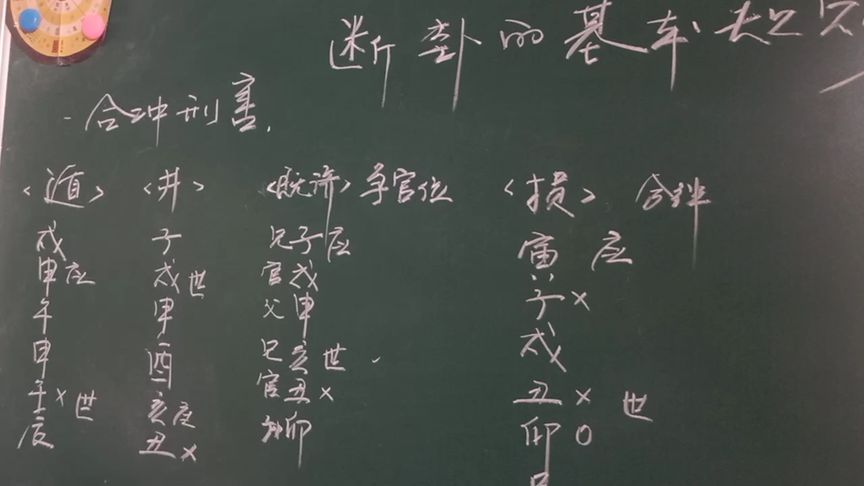 断卦的基本规则
一合冲刑害.
<遁>
戌
申应
午
申
午×世
辰
<井>
子
戌世
申
酉
亥应
丑×
<既济>争官位
兄子应
官戌
父申
兄亥世
官丑×
卯
<损> 合绊
寅 应
子×
戌
丑× 世
卯○